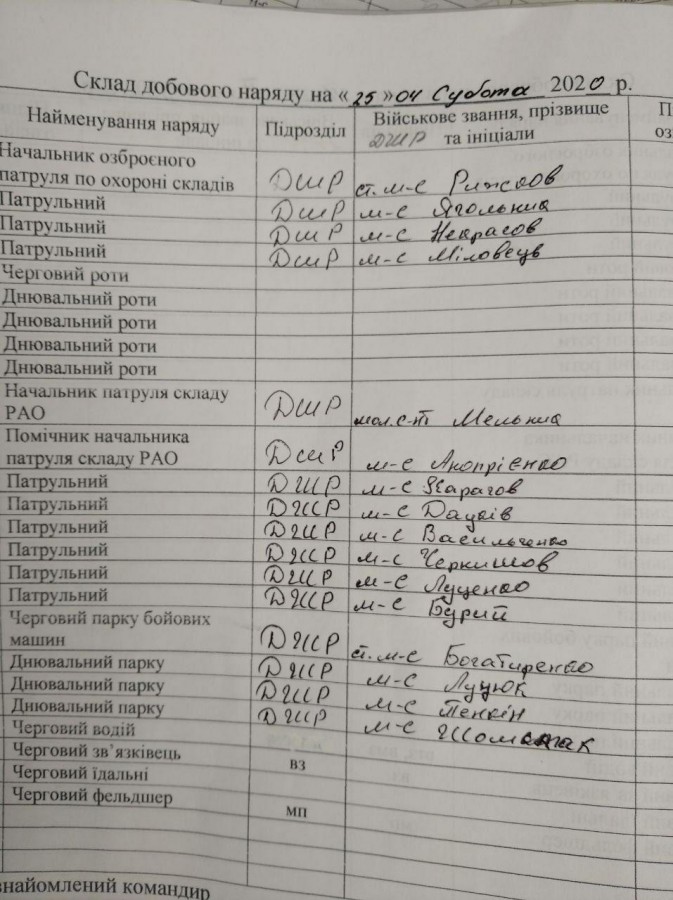 Склад добового наряду на « 25 » 04 Субота 2020 р.
Найменування наряду Підрозділ Військове звання, прізвище та ініціали
ДШР
Начальник озброєного
патруля по охороні складів ДШР ст. м-с
Патрульний ДШР м-с Ягольник
Патрульний ДШР м-с Некрасов
Патрульний ДШР м-с Міловець
Черговий роти
Днювальний роти
Днювальний роти
Днювальний роти
Днювальний роти
Начальник патруля складу
РАО ДШР мол. с-т Мельник
Помічник начальника
патруля складу РАО ДШР м-с
Патрульний ДШР м-с
Патрульний ДШР м-с Дацків
Патрульний ДШР м-с Васильченко
Патрульний ДШР м-с Чернишов
Патрульний ДШР м-с Луценко
Патрульний ДШР м-с Бурий
Черговий парку бойових
машин ДШР ст. м-с Богатиренко
Днювальний парку ДШР м-с Луцюк
Днювальний парку ДШР м-с Пенкін
Днювальний парку ДШР м-с
Черговий водій
Черговий зв’язківець вз
Черговий їдальні
Черговий фельдшер мп
знайомлений командир